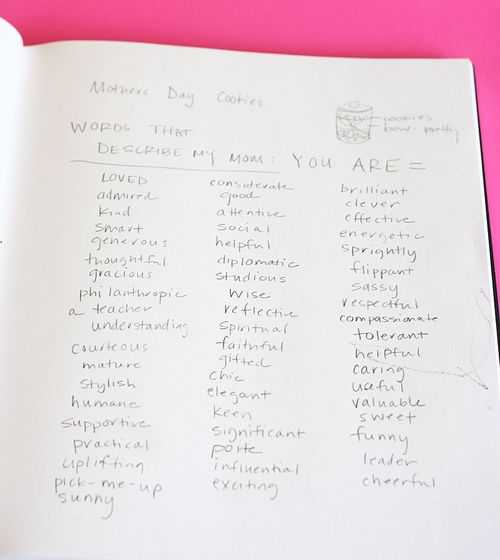 Mothers Day Cookies
cookies
WORDS THAT
DESCRIBE MY MOM: YOU ARE =
LOVED
admired
kind
smart
generous
thoughtful
gracious
philanthropic
a teacher
understanding
courteous
mature
stylish
humane
supportive
practical
uplifting
pick-me-up
sunny
considerate
good
attentive
social
helpful
diplomatic
studious
wise
reflective
spiritual
faithful
gifted
chic
elegant
keen
significant
influential
exciting
brilliant
clever
effective
energetic
sprightly
flippant
sassy
respectful
compassionate
tolerant
helpful
caring
useful
valuable
sweet
funny
leader
cheerful